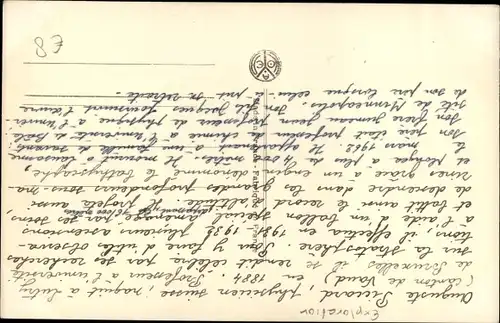 Exploration
Auguste Piccard, physicien suisse, naquit à Lutry
(Canton de Vaud) en 1884. Professeur à l'université
de Bruxelles il se rendit célèbre par ses recherches
sur la stratosphère. Pour y faire d'utiles observa-
tions, il effectua en 1931-1932 plusieurs ascensions
à l'aide d'un ballon spécial, aménagé par ses soins,
et battit ainsi le record d'altitude. Il projeta aussi
de descendre dans les grandes profondeurs sous-ma-
rines grâce à un engin dénommé le bathyscaphe,
et plongea à plus de 4 000 mètres. Il mourut à Lausanne
le mars 1962. Il appartenait à une famille de savants
son père était professeur de chimie à l'université de Bâle,
son frère jumeau Jean professeur de physique à l'univer-
sité de Minneapolis. Son fils Jacques poursuivit l'œuvre
de son père lorsque celui-ci prit sa retraite.
£8